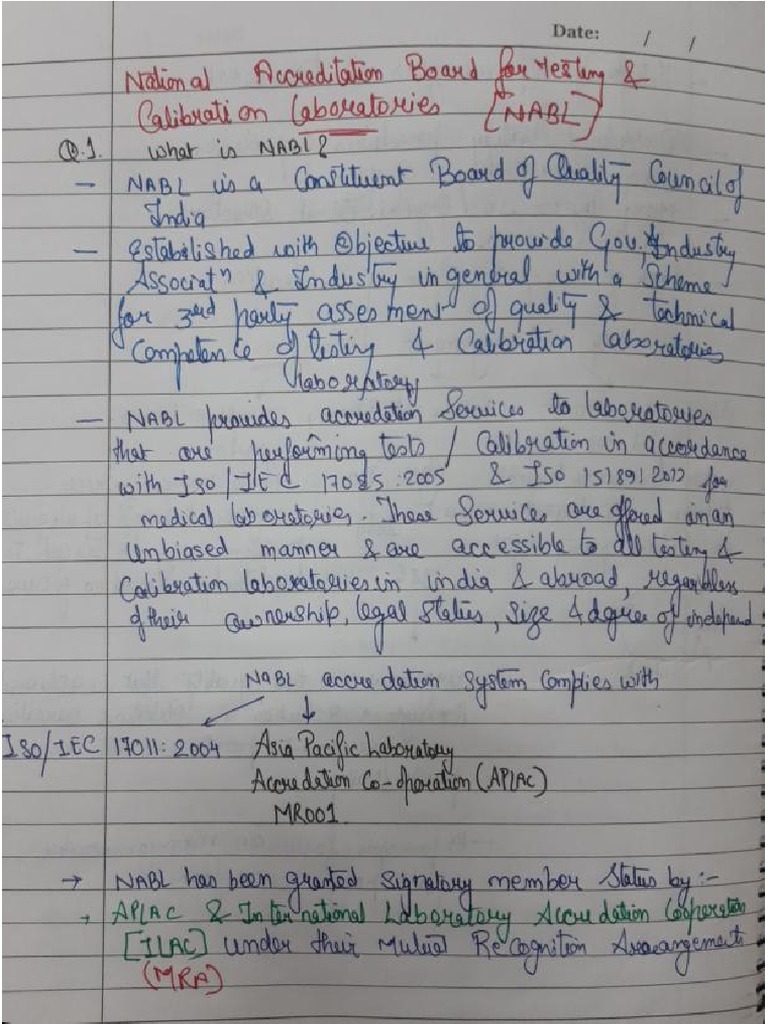 Date: / /
National Accreditation Board for Testing &
Calibration Laboratories [NABL]
Q.1. What is NABL?
— NABL is a Constituent Board of Quality Council of
India
— Estabilished with Objective to provide Gov., Industry
Associatⁿ & Industry in general with a Scheme
for 3rd party assesment of quality & technical
Competence of testing & Calibration laboratories
laboratory
— NABL provides accredation Services to laboratories
that are performing tests / Calibration in accordance
with ISO/IEC 17025:2005 & ISO 15189:2012 for
medical laboratories. These Services are offered in an
unbiased manner & are accessible to all testing &
Calibration laboratories in india & abroad, regardless
of their ownership, legal status, size & dgree of independ
NABL accredation system Complies with
ISO/IEC 17011:2004 Asia Pacific Laboratory
Accredation Co-operation (APLAC)
MR001.
→ NABL has been granted Signatory member Status by:-
→ APLAC & International Laboratory Accredation Cooperation
[ILAC] under their Mutual Recognition Arrangements
(MRA)